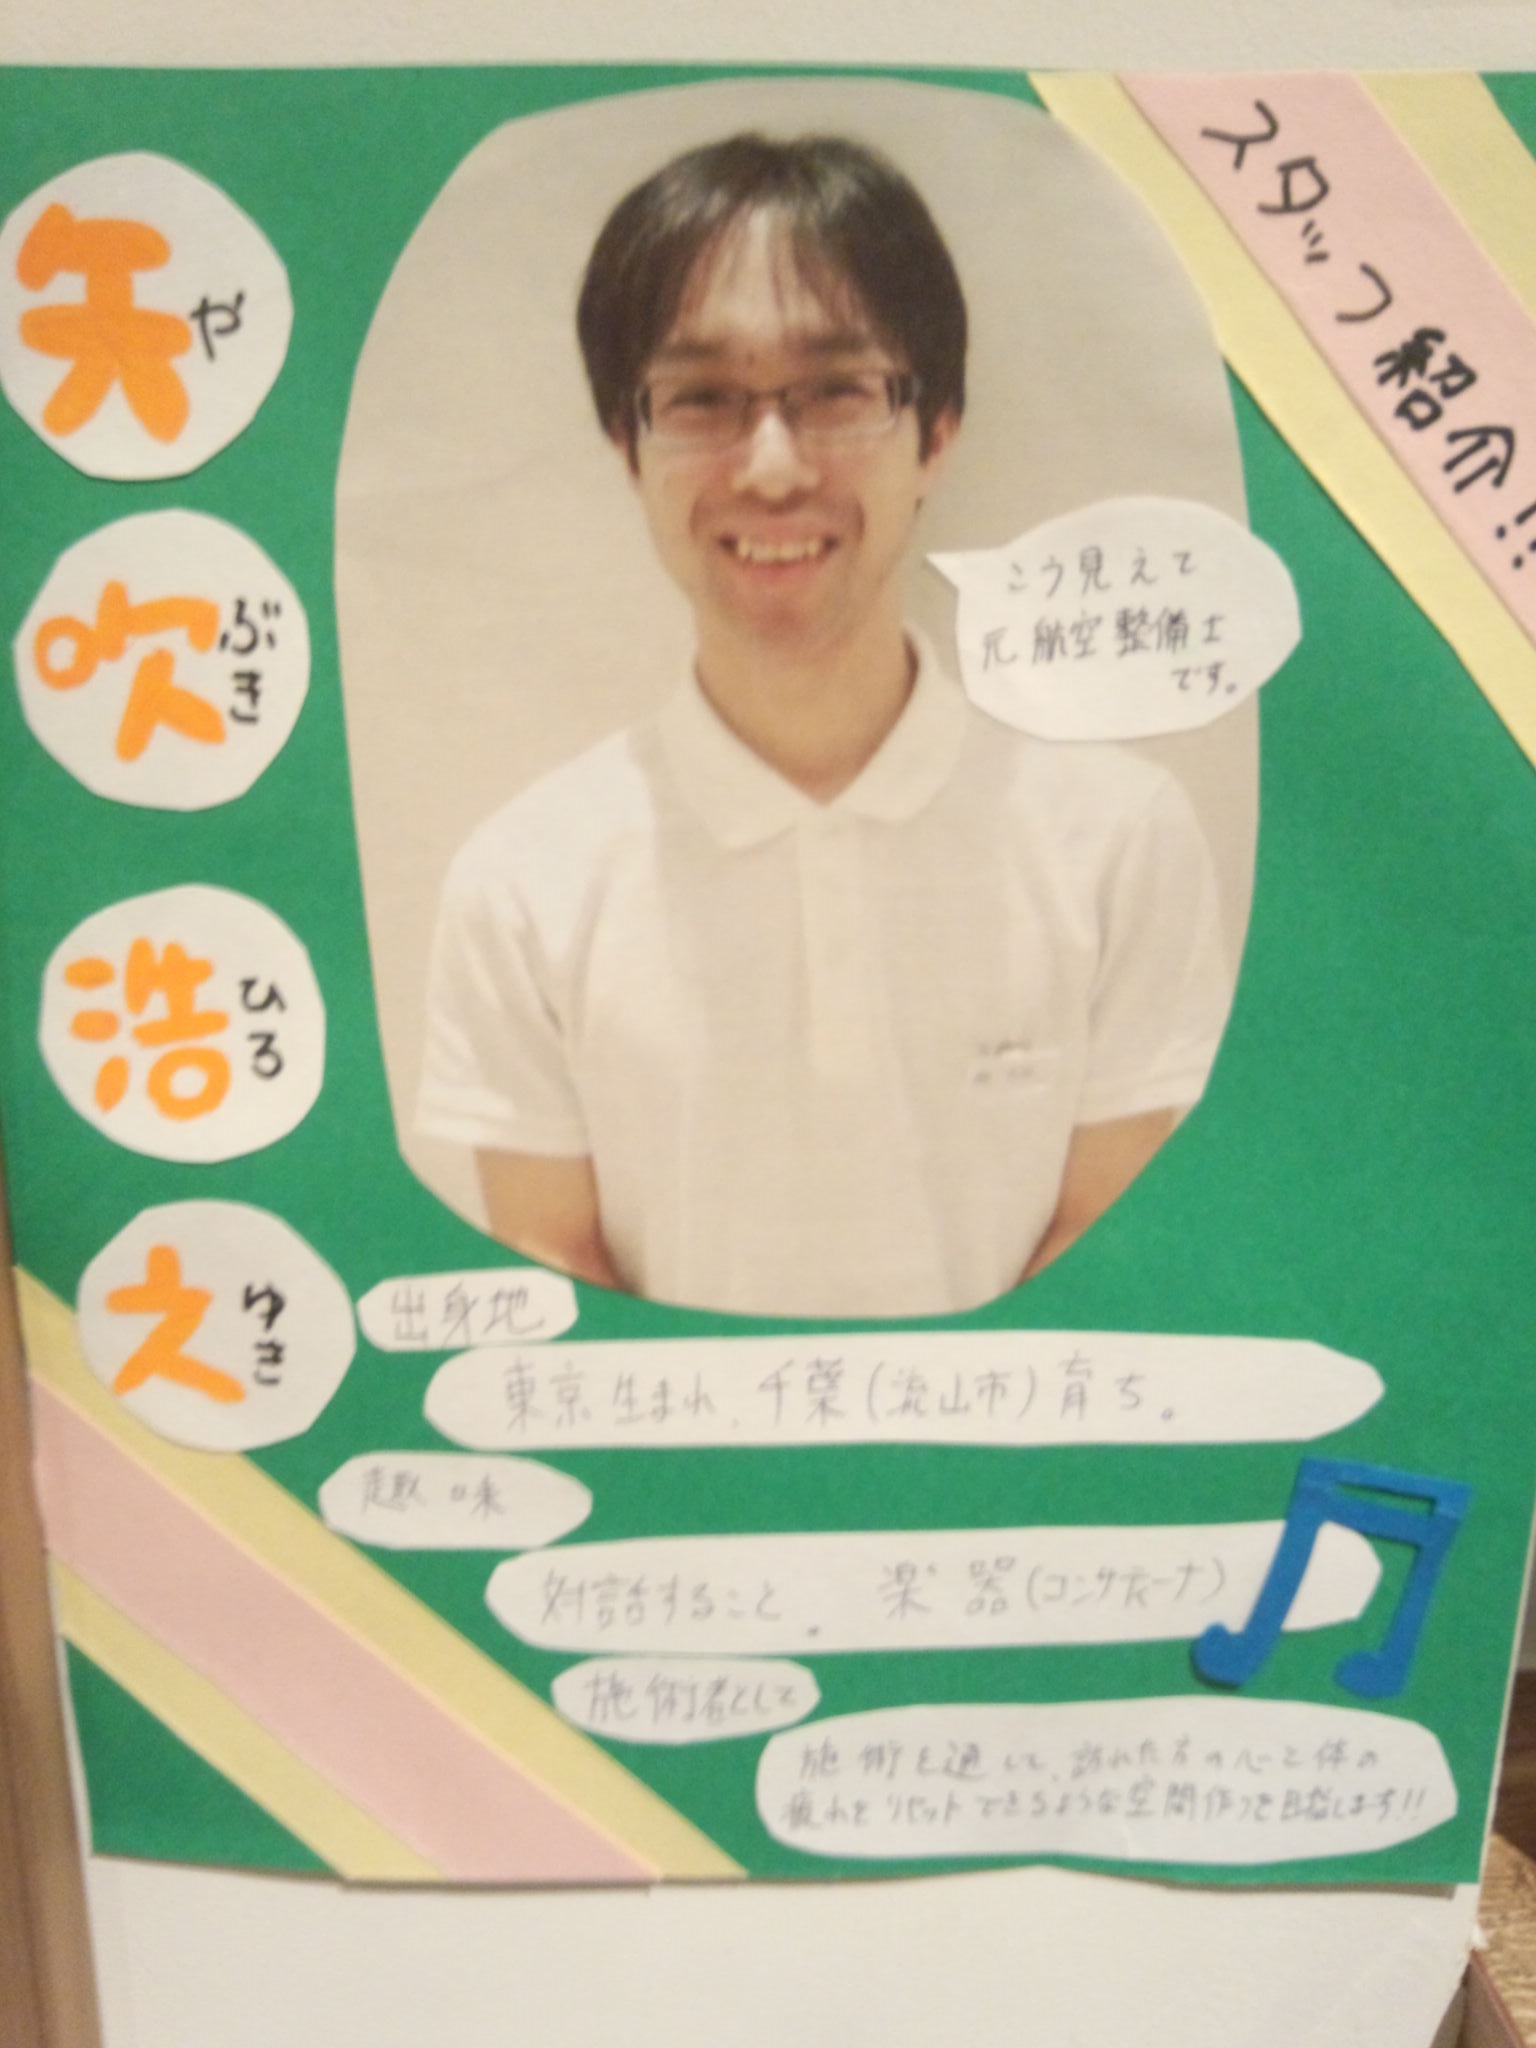 スタッフ紹介!!
矢 や
吹 ぶき
浩 ひろ
之 ゆき
こう見えて
元航空整備士
です。
出身地
東京生まれ、千葉(流山市)育ち。
趣味
対話すること、楽器(コンサティーナ)
施術者として
施術を通して、訪れた方の心と体の
疲れをリセットできるような空間作りを目指します!!